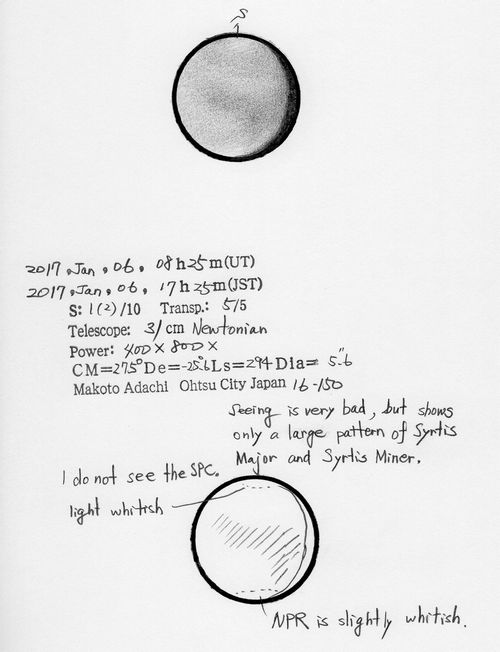 S
2017, Jan, 06, 08h25m(UT)
2017, Jan, 06, 17h25m(JST)
S: 1(2)/10 Transp.: 5/5
Telescope: 31cm Newtonian
Power: 400× 800×
CM=275° De=-25.°6 Ls=294 Dia= 5."6
Makoto Adachi Ohtsu City Japan 16-150
Seeing is very bad, but shows
only a large pattern of Syrtis
Major and Syrtis Miner.
I do not see the SPC.
light whitish
NPR is slightly whitish.